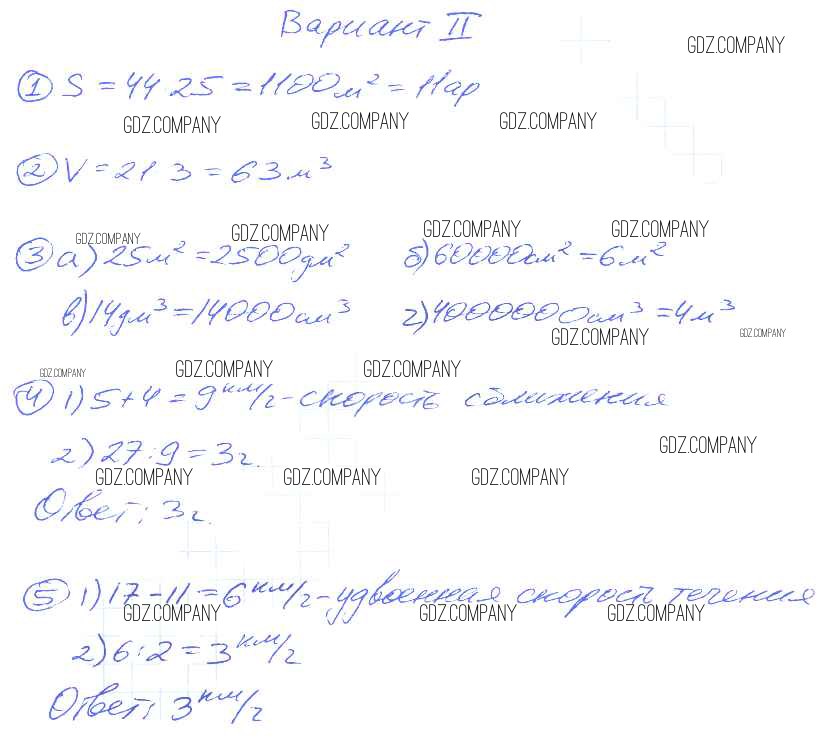 Вариант II
GDZ.COMPANY
① S = 44 · 25 = 1100 м² = 11 ар
GDZ.COMPANY GDZ.COMPANY GDZ.COMPANY
② V = 21 · 3 = 63 м³
GDZ.COMPANY GDZ.COMPANY GDZ.COMPANY GDZ.COMPANY
③ а) 25 м² = 2500 дм² б) 60000 см² = 6 м²
в) 14 дм³ = 14000 см³ г) 4000000 см³ = 4 м³
GDZ.COMPANY GDZ.COMPANY
GDZ.COMPANY GDZ.COMPANY GDZ.COMPANY
④ 1) 5 + 4 = 9 км/г - скорость сближения
2) 27 : 9 = 3 г.
GDZ.COMPANY
GDZ.COMPANY GDZ.COMPANY GDZ.COMPANY
Ответ: 3 г.
⑤ 1) 17 - 11 = 6 км/г - удвоенная скорость течения
GDZ.COMPANY GDZ.COMPANY GDZ.COMPANY
2) 6 : 2 = 3 км/г
Ответ: 3 км/г